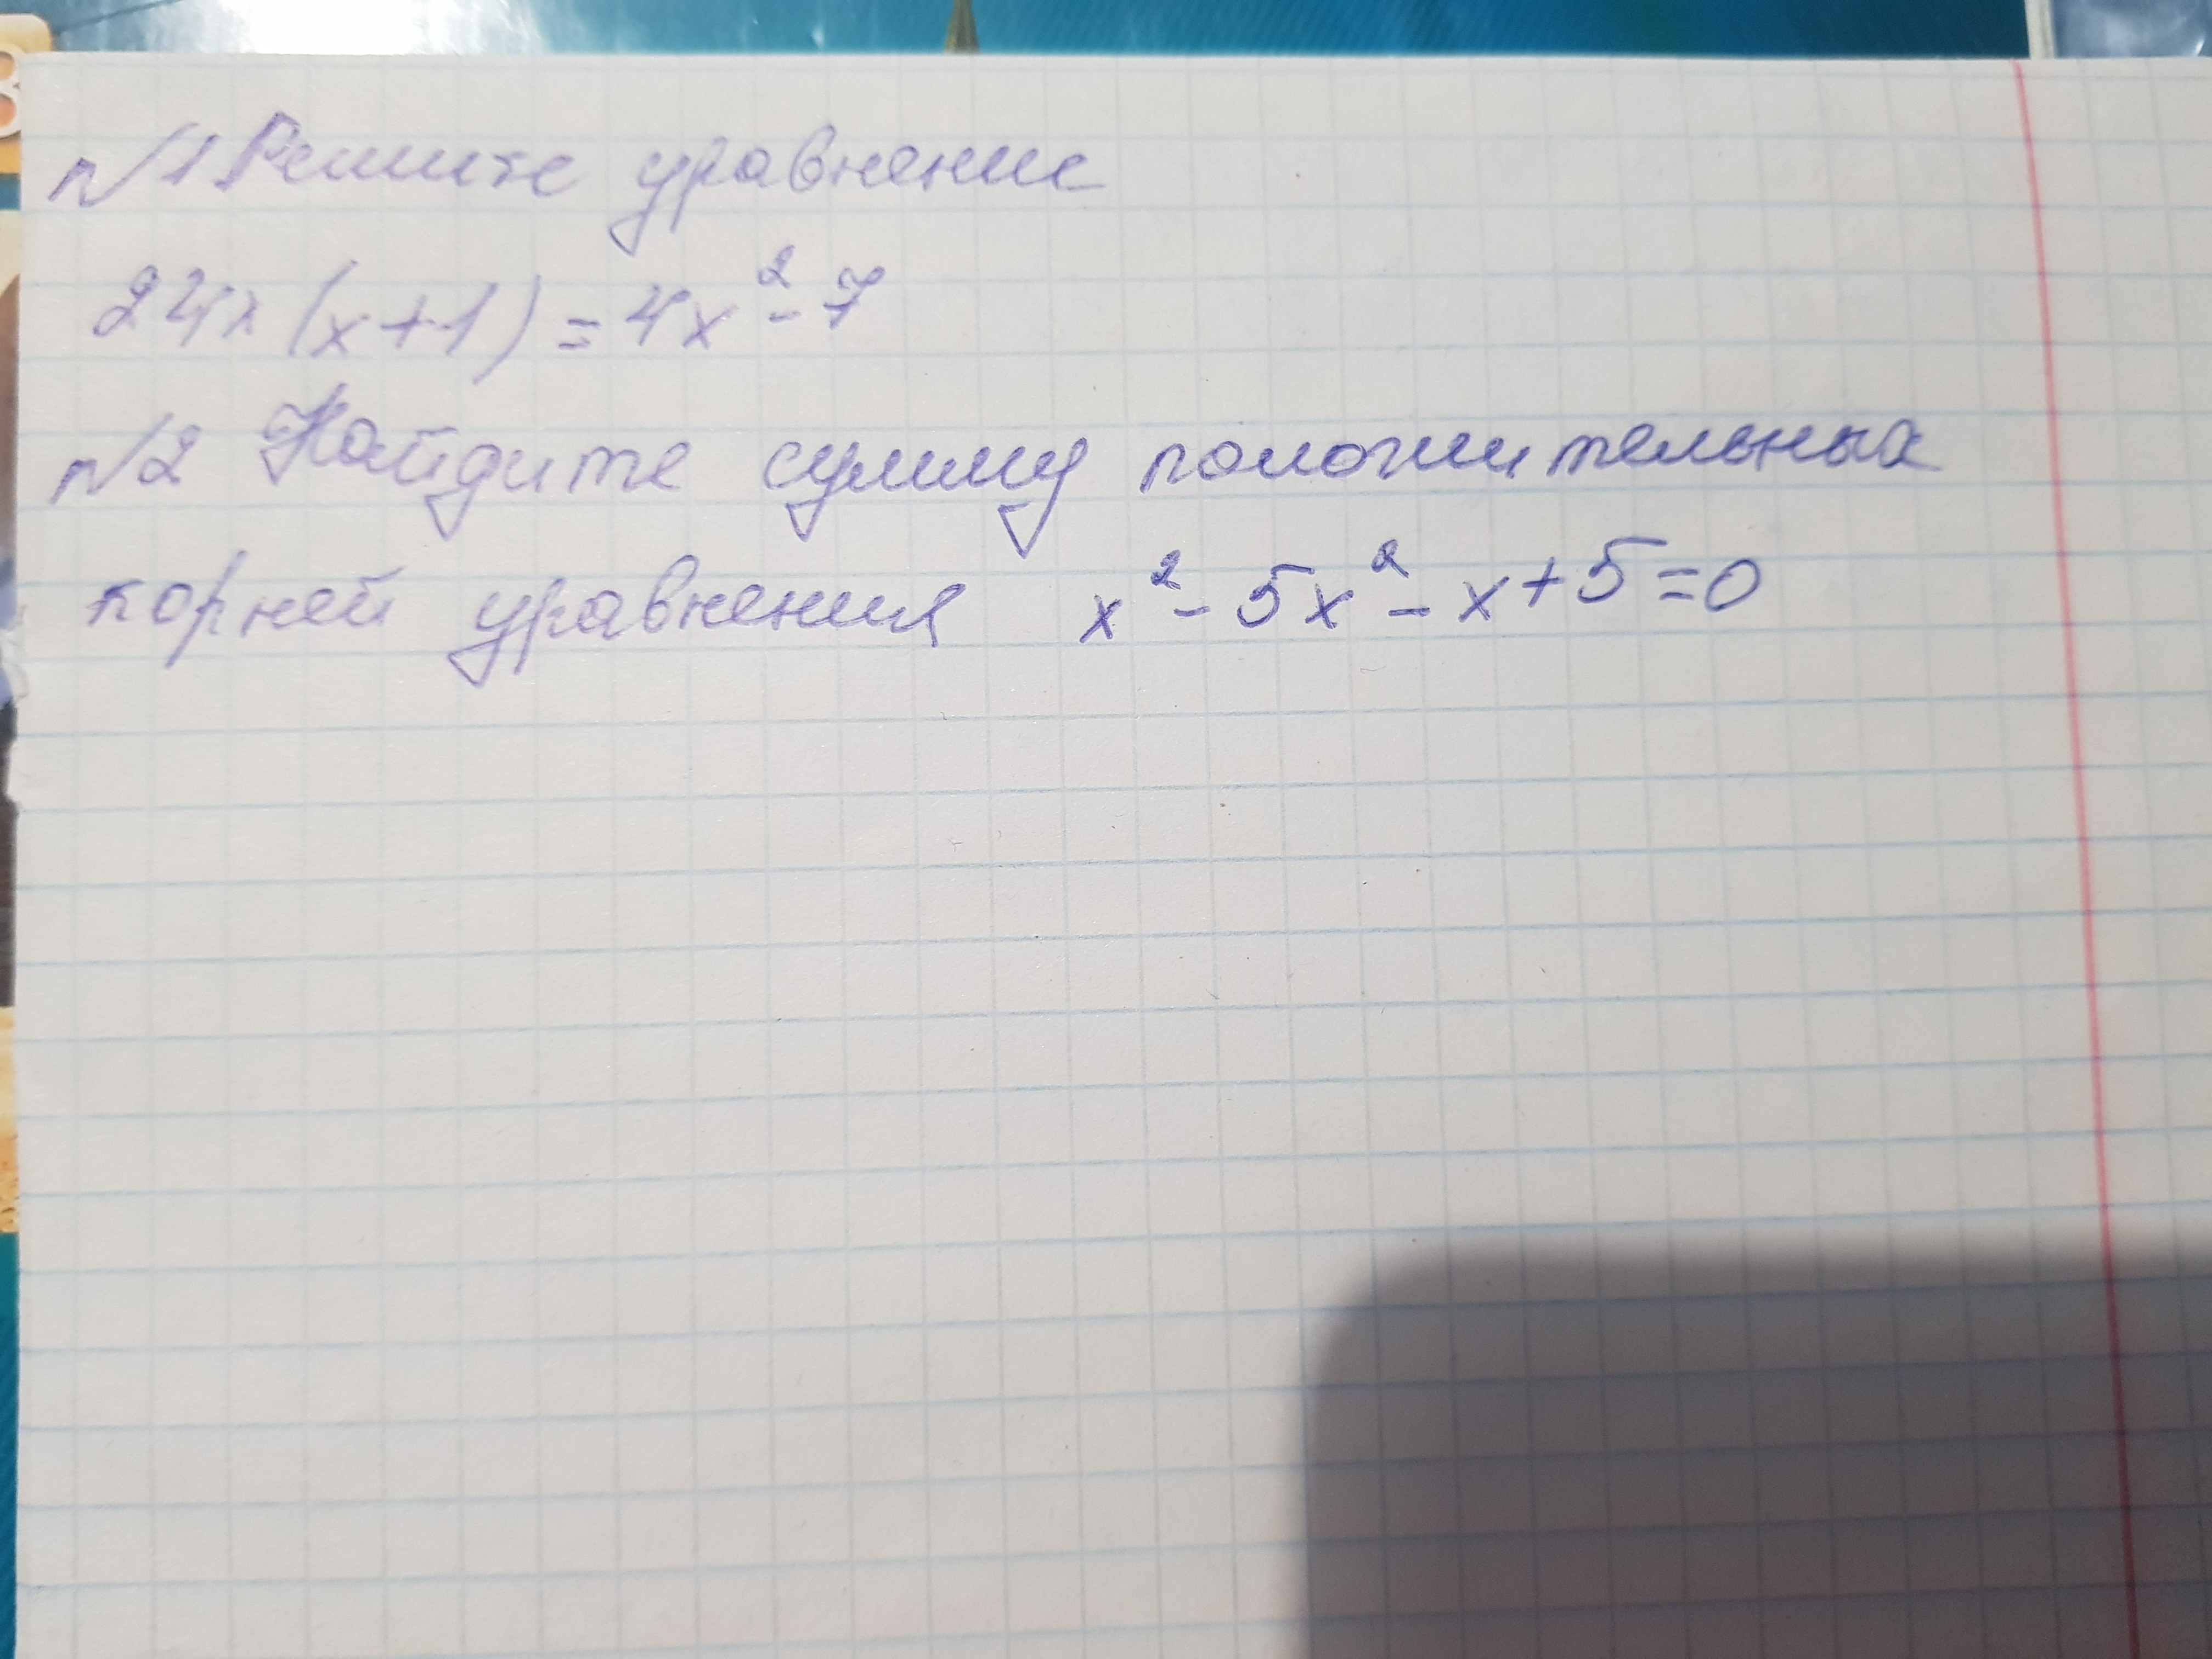 №1 Решите уравнение
24x(x+1)=4x²-7
№2 Найдите сумму положительных
корней уравнения x²-5x²-x+5=0